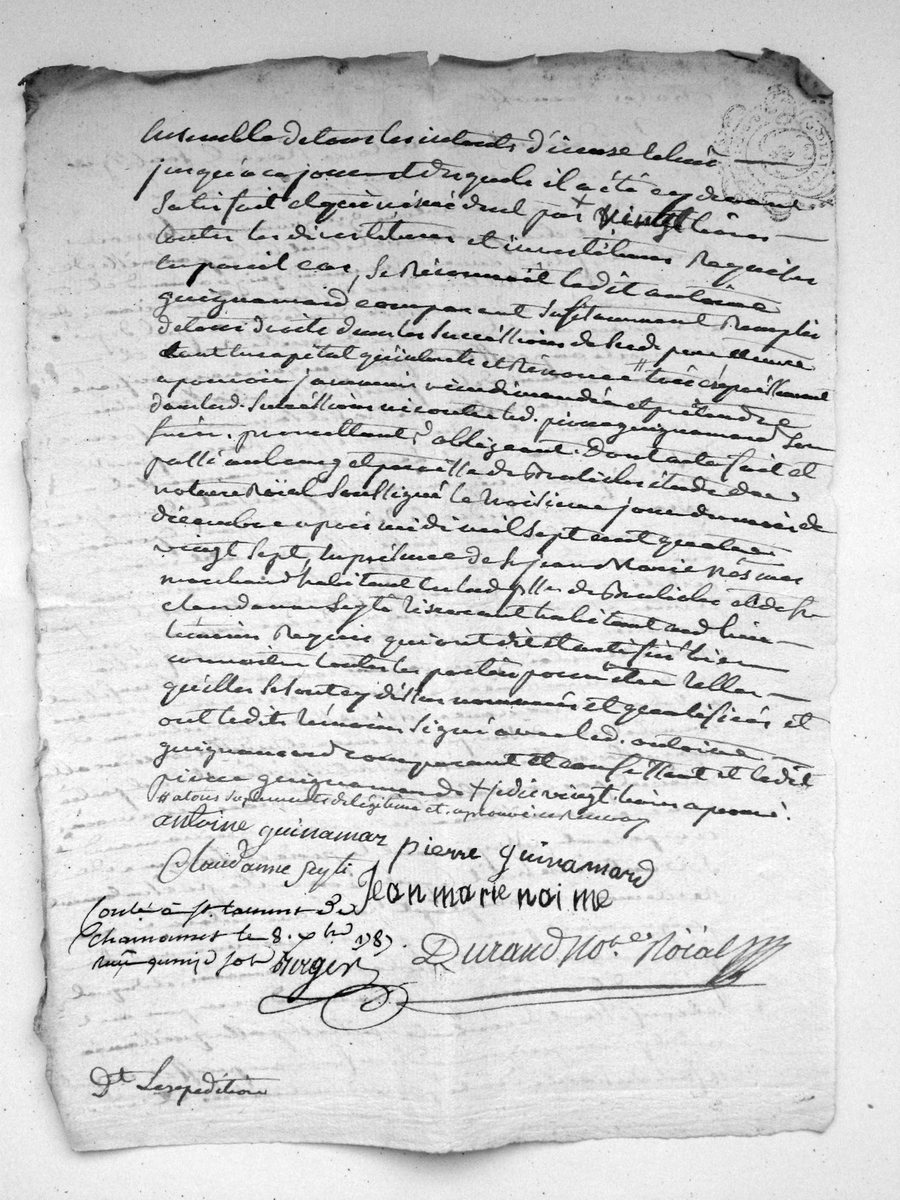 Ensemble de tous les interets d'iceuse le luii
jusqu'a ce jour et desquels il a été cy devant
satisfait et qui venoient dud. par + vingt livres
toutes les divestitures et investitures Requises
En pareil cas, se Reconnoit ledit antoine
guignamard comparant suffisamment Remplis
de tous droits dans les successions de ses d. pere et mere
tant En capital qu'interets et Renonce # très expressément
a pouvoir jamais rien demander et pretendre
dans lesd. successions ni contre led. pierre guignamard son
frere. promettant, obligeant. Dont acte fait et
passé au bourg et paroisse de Brulioles étude du
notaire Roïal soussigné le troisieme jour du mois de
décembre apres midi mil sept cent quatre
vingt sept, En présence de sr jean Marie nesme
marchand habitant En lad. psse de Brulioles et de sr
claudanne Seyte habitant aud. lieu
temoins Requis qui ont dit et attesté bien
connoitre toutes les parties pour être telles
qu'elles se sont cy dessus nommées et qualifiées et
ont lesdits temoins signé avec led. antoine
guignamard comparant et consentant et ledit
pierre guignamard. + je dis vingt livres aprouvé.
# a tous suplements de légitime et, aprouvé ce Renvoy
antoine guinamar pierre guinamard
Claudanne Seyte
Jean marie naime
Conlé à st. Laurent de
Chamousset le 8. xbre 1787
Durand No.re Roïal
Dt Lexpedition